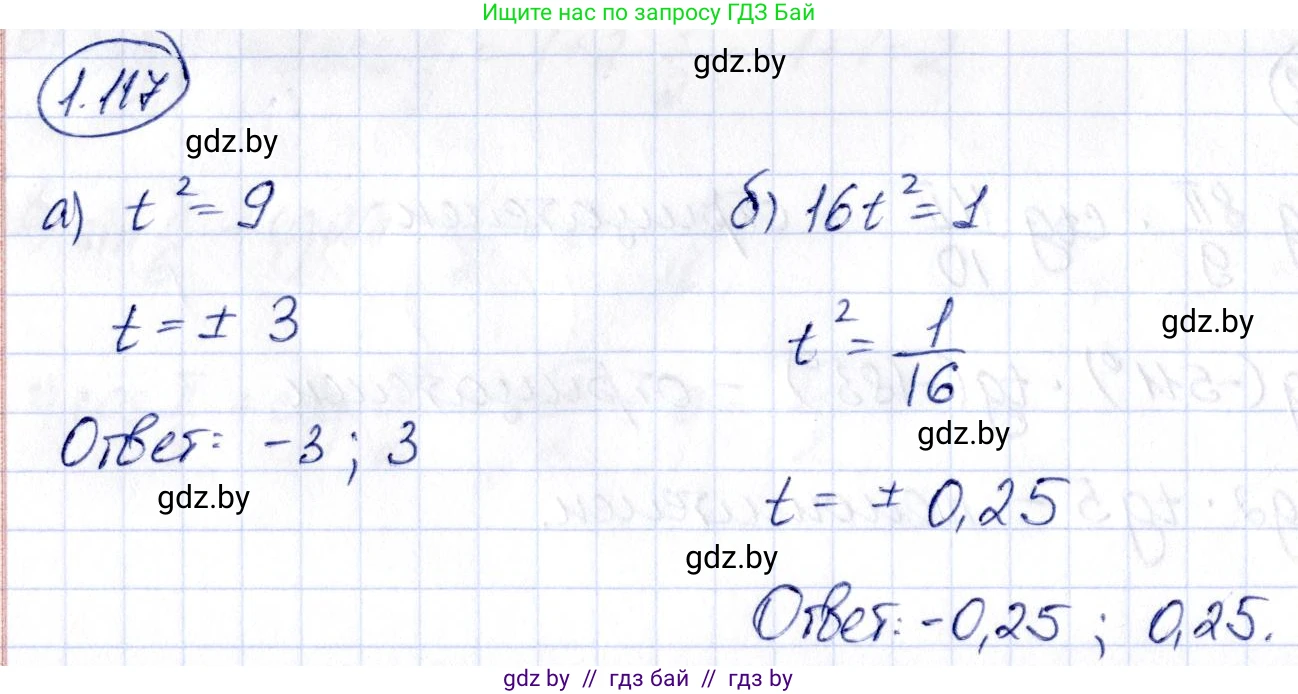 Ищите нас по запросу ГДЗ Бай
gdz.by
1.117
gdz.by
а) t² = 9
б) 16t² = 1
t = ± 3
t² = 1/16
gdz.by
Ответ: -3 ; 3
gdz.by
gdz.by
t = ± 0,25
gdz.by
Ответ: -0,25 ; 0,25.
gdz.by // гдз бай // гдз by